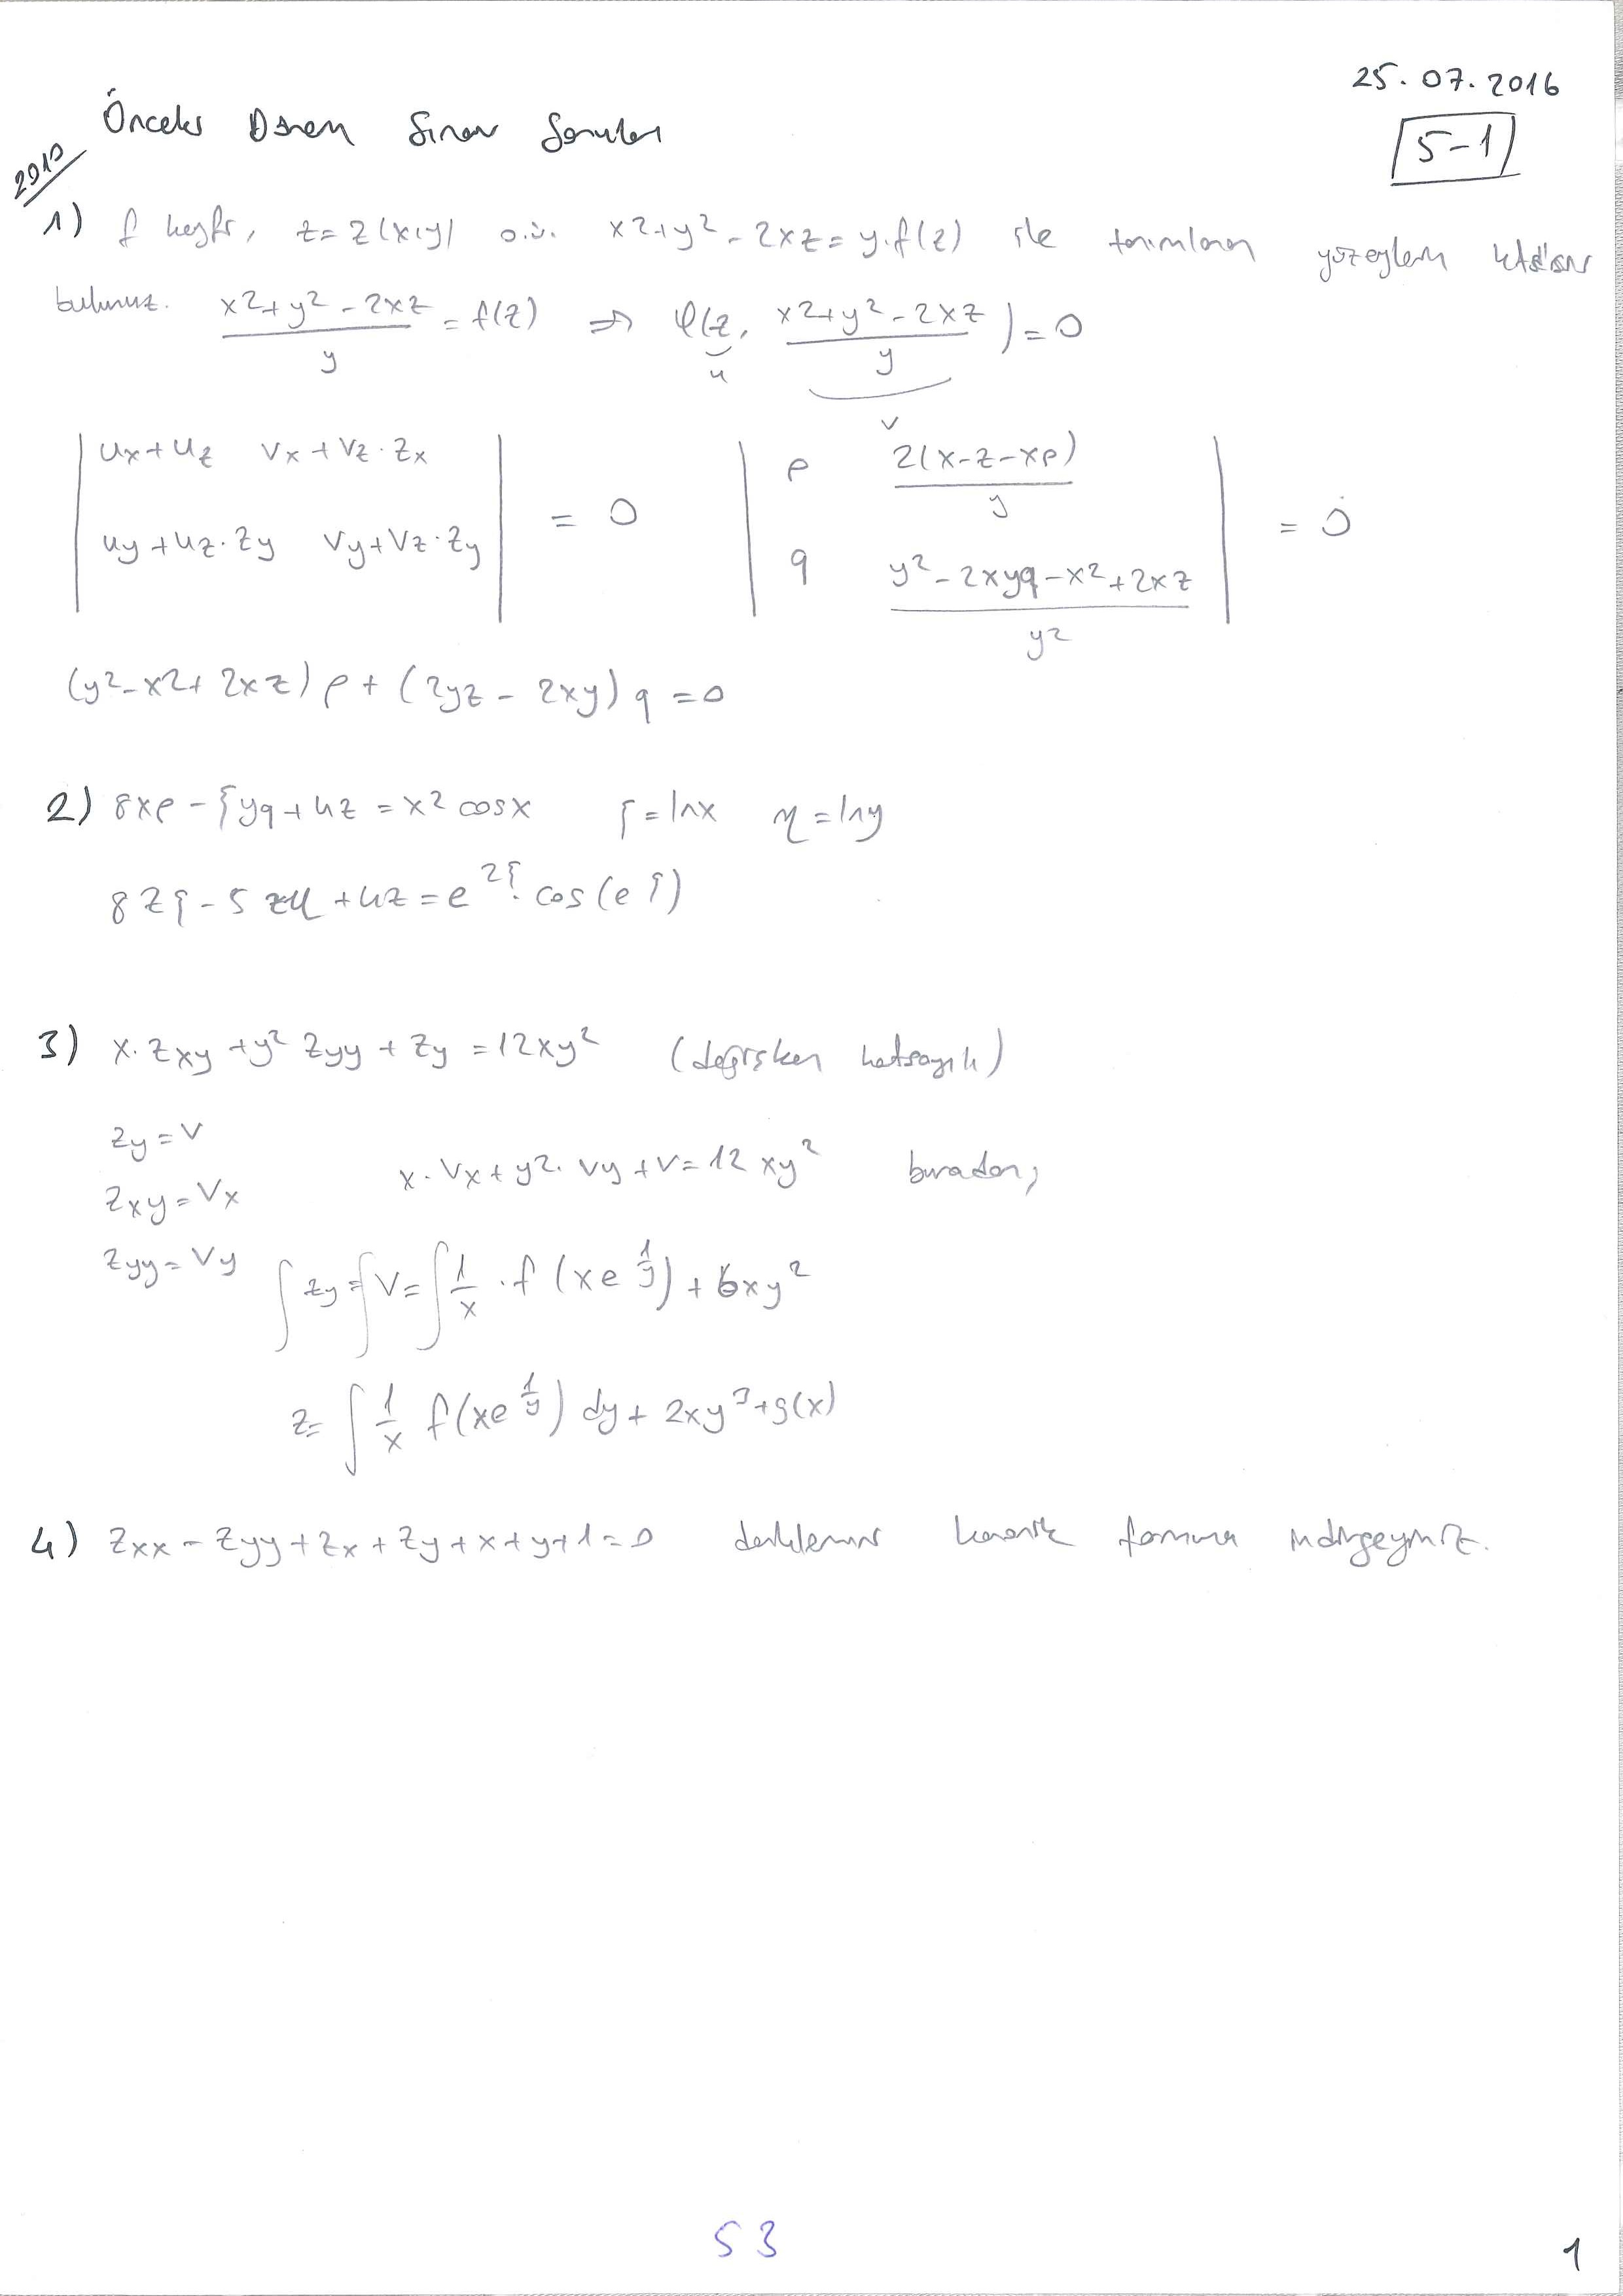 25.07.2016
Önceki Dönem Sınav Soruları
5-1
2010
1) f keyfi, z=z(x,y) o.ü. x²+y²-2xz=y.f(z) ile tanımlanan yüzeylerin
bulunuz. (x²+y²-2xz)/y = f(z) ⇒ φ(z, (x²+y²-2xz)/y) = 0
u v
| ux+uz vx+vz·zx | = 0 | p 2(x-z-xp)/y | = 0
| uy+uz·zy vy+vz·zy | | q (y²-2xyq-x²+2xz)/y² |
(y²-x²+2xz)p+(2yz-2xy)q=0
2) 8xp-5yq+4z=x²cosx ξ=lnx η=lny
8zξ-5zη+4z=e^2ξ.cos(e^ξ)
3) x.zxy+y²zyy+zy=12xy² (değişken katsayılı)
zy=v
x.vx+y².vy+v=12xy² buradan;
zxy=vx
zyy=vy
∫zy=∫v=∫1/x.f(xe^(1/y))+6xy²
z=∫1/x f(xe^(1/y))dy+2xy³+g(x)
4) zxx-zyy+zx+zy+x+y+1=0 denklemini kanonik forma indirgeyiniz.
53
1